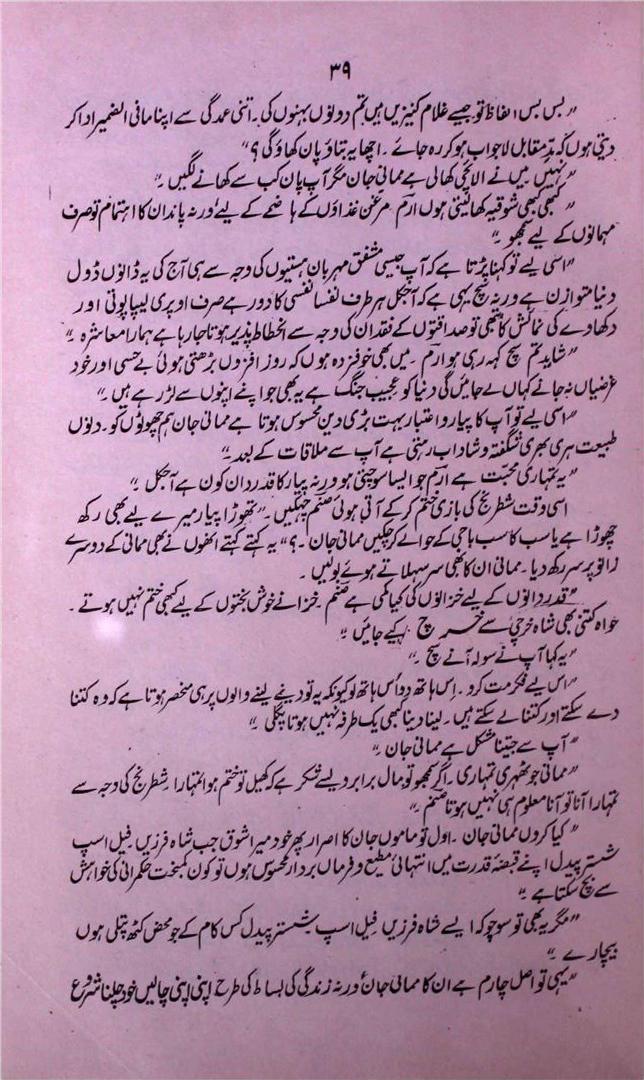 ۳۹
"بس بس الفاظ تو جیسے غلام کنیزیں ہیں تم دونوں بہنوں کی۔ اتنی عمدگی سے اپنا مافی الضمیر ادا کر
دیتی ہوں کہ مدِّ مقابل لاجواب ہو کر رہ جائے۔ اچھا یہ بتاؤ پان کھاؤ گی؟"
"نہیں میں نے الائچی کھالی ہے ممانی جان مگر آپ پان کب سے کھانے لگیں۔"
"کبھی کبھی شوقیہ کھا لیتی ہوں ارم۔ مرغن غذاؤں کے ہاضمے کے لیے ورنہ پاندان کا اہتمام تو صرف
مہمانوں کے لیے سمجھو۔"
"اسی لیے تو کہنا پڑتا ہے کہ آپ جیسی مشفق مہربان ہستیوں کی وجہ سے ہی آج کی یہ ڈانواں ڈول
دنیا متوازن ہے ورنہ سچ یہی ہے کہ آجکل ہر طرف نفسا نفسی کا دور ہے صرف اوپری لیپا پوتی اور
دکھاوے کی نمائش کا تبھی تو صداقتوں کے فقدان کی وجہ سے انحطاط پذیر ہوتا جا رہا ہے ہمارا معاشرہ۔"
"شاید تم سچ کہہ رہی ہو ارم۔ میں بھی خوفزدہ ہوں کہ روز افزوں بڑھتی ہوئی بے حسی اور خود
غرضیاں نہ جانے کہاں لے جائیں گی دنیا کو عجیب جنگ ہے یہ بھی جو اپنے اپنوں سے لڑ رہے ہیں۔"
"اسی لیے تو آپ کا پیار و اعتبار بہت بڑی دین محسوس ہوتا ہے ممانی جان ہم چھوٹوں کو۔ دنوں
طبیعت ہری بھری شگفتہ و شاداب رہتی ہے آپ سے ملاقات کے بعد۔"
"یہ تمہاری محبت ہے ارم جو ایسا سوچتی ہو ورنہ پیار کا قدردان کون ہے آجکل۔"
اسی وقت شطرنج کی بازی ختم کر کے آتی ہوئی صنم چہکیں۔ "تھوڑا پیار میرے لیے بھی رکھ
چھوڑا ہے یا سب کا سب باجی کے حوالے کر چکیں ممانی جان۔؟" یہ کہتے کہتے انھوں نے بھی ممانی کے دوسرے
زانو پر سر رکھ دیا۔ ممانی ان کا بھی سر سہلاتے ہوئے بولیں۔
"قدردانوں کے لیے خزانوں کی کیا کمی ہے صنم۔ خزانے خوش بختوں کے لیے کبھی ختم نہیں ہوتے۔
خواہ کتنی بھی شاہ خرچی سے خرچ کیے جائیں۔"
"یہ کہا آپ نے سولہ آنے سچ۔"
"اس لیے فکر مت کرو۔ اس ہاتھ دو اس ہاتھ لو کیونکہ یہ تو دینے لینے والوں پر ہی منحصر ہوتا ہے کہ وہ کتنا
دے سکتے اور کتنا لے سکتے ہیں۔ لینا دینا کبھی یک طرفہ نہیں ہوتا پگلی۔"
"آپ سے جیتنا مشکل ہے ممانی جان۔"
"ممانی جو ٹھہری تمہاری۔ اگر سمجھو تو مال برابر ویسے شکر ہے کہ کھیل تو ختم ہوا تمہارا۔ شطرنج کی وجہ سے
تمہارا آنا تو آنا معلوم ہی نہیں ہوتا صنم۔"
"کیا کروں ممانی جان۔ اول تو ماموں جان کا اصرار پھر خود میرا شوق جب شاہ فرزیں۔ فیل اسپ
شستر پیدل اپنے قبضۂ قدرت میں انتہائی مطیع و فرماں بردار محسوس ہوں تو کون کمبخت حکمرانی کی خواہش
سے بچ سکتا ہے۔"
"مگر یہ بھی تو سوچو کہ ایسے شاہ فرزیں فیل اسپ شستر پیدل کس کام کے جو محض کٹھ پتلی ہوں
بیچارے۔"
"یہی تو اصل چارم ہے ان کا ممانی جان ورنہ زندگی کی بساط کی طرح اپنی اپنی چالیں خود چلنا شروع